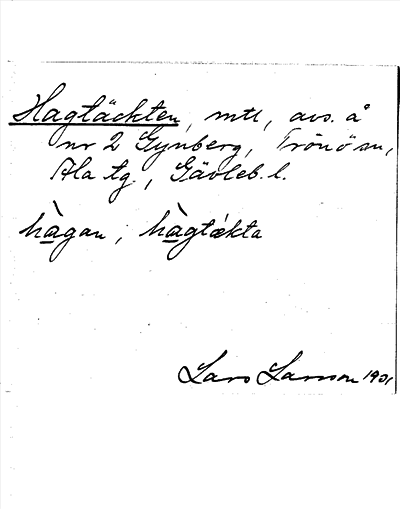 Hagtäckten, mtl, avs. å
nr 2 Gynberg, Trönö sn,
Ala tg., Gävleb. l.
hàgan; hàgtækta
Lars Larsson 1901